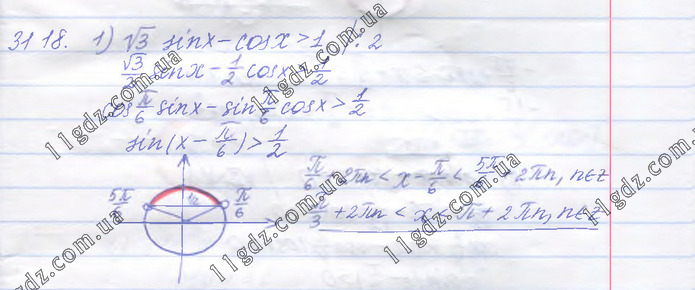 31 18. 1) √3 sinx - cosx > 1 /: 2
√3/2 sinx - 1/2 cosx > 1/2
cos π/6 sinx - sin π/6 cosx > 1/2
sin(x - π/6) > 1/2
π/6 + 2πn < x - π/6 < 5π/6 + 2πn, n∈Z
π/3 + 2πn < x < π + 2πn, n∈Z
5π/6 1/2 π/6
11gdz.com.ua
11gdz.com.ua
11gdz.com.ua
11gdz.com.ua
11gdz.com.ua
11gdz.com.ua
11gdz.com.ua